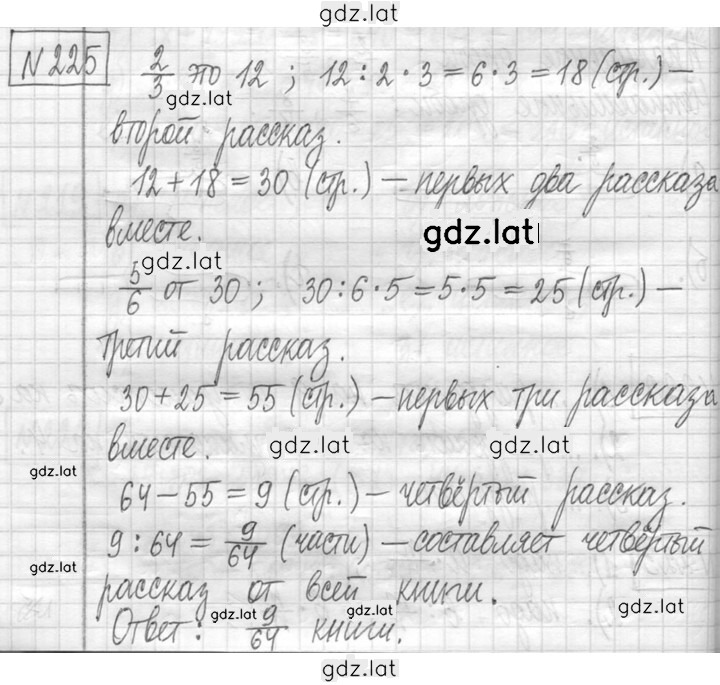 gdz.lat
N 225
2/3 это 12 ; 12 : 2 · 3 = 6 · 3 = 18 (стр.) —
gdz.lat
второй рассказ.
12 + 18 = 30 (стр.) — первых два рассказа
вместе.
gdz.lat
gdz.lat
5/6 от 30 ; 30 : 6 · 5 = 5 · 5 = 25 (стр.) —
третий рассказ.
30 + 25 = 55 (стр.) — первых три рассказа
вместе.
gdz.lat
gdz.lat
gdz.lat
64 − 55 = 9 (стр.) — четвёртый рассказ.
9 : 64 = 9/64 (части) — составляет четвёртый
gdz.lat
рассказ от всей книги.
gdz.lat
gdz.lat
gdz.lat
Ответ: 9/64 книги.
gdz.lat